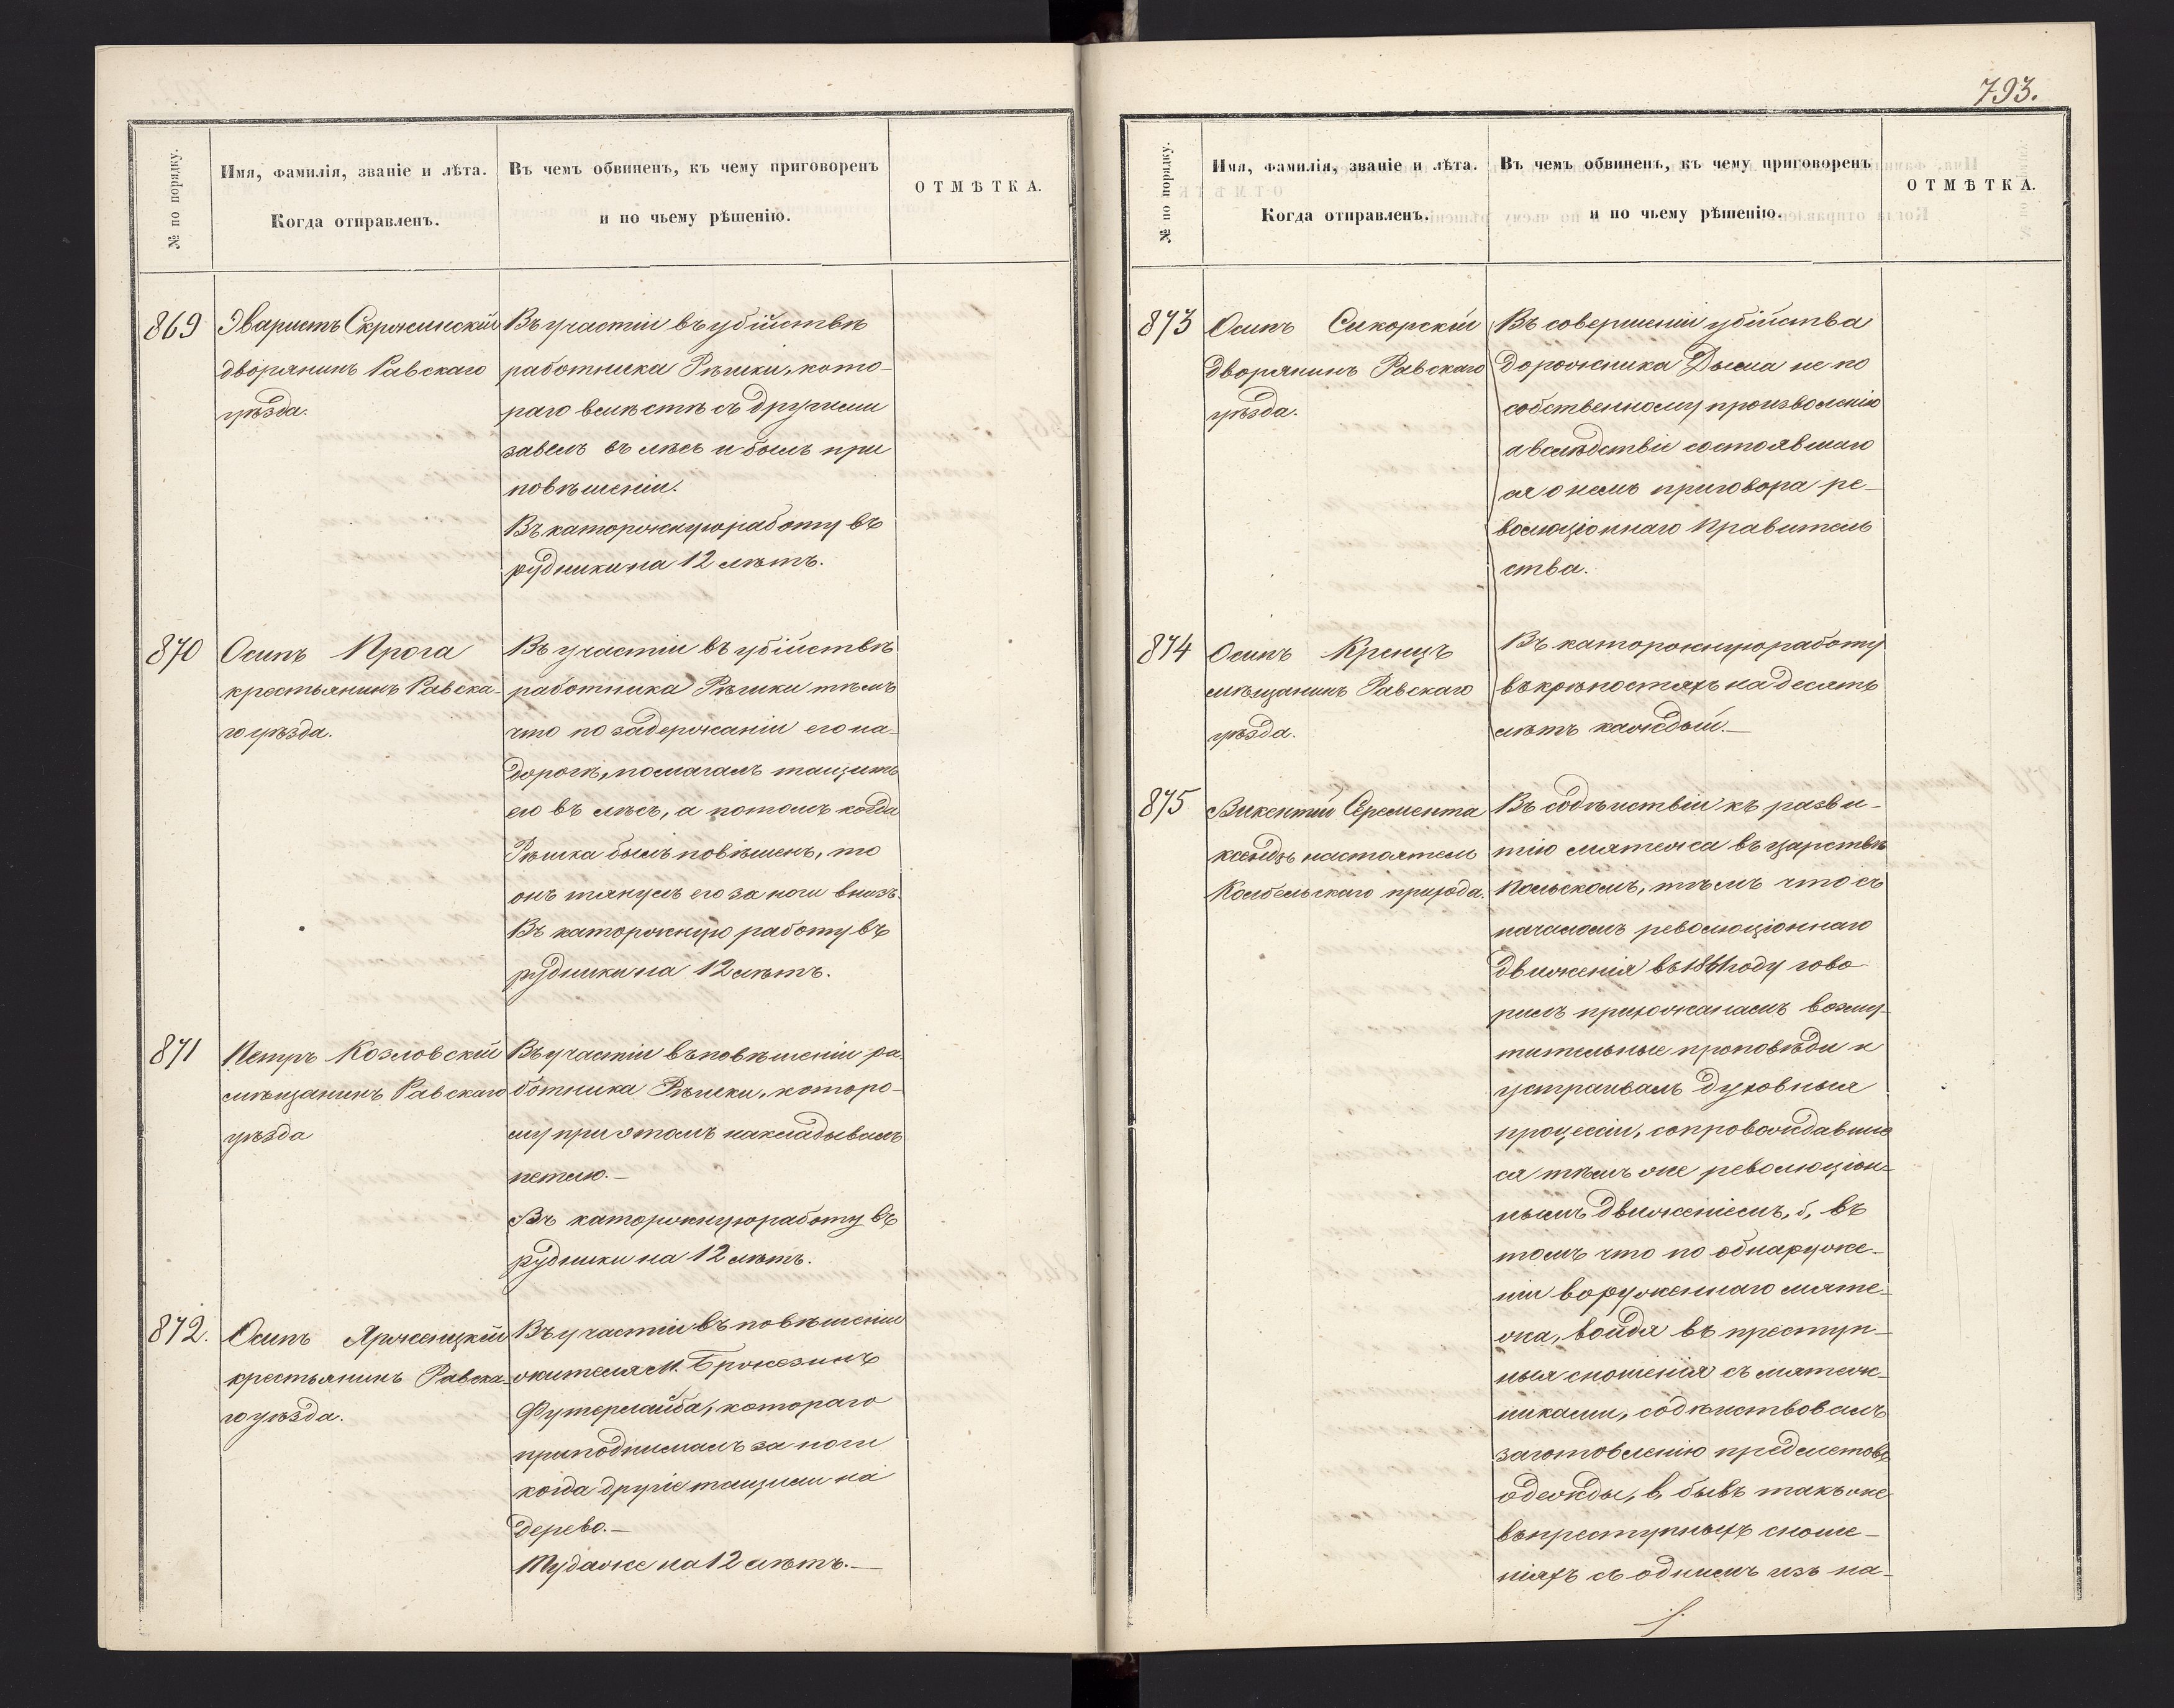 № по порядку.
Имя, фамилія, званіе и лѣта.
Когда отправленъ.
Въ чемъ обвиненъ, къ чему приговоренъ
и по чьему рѣшенію.
ОТМѢТКА.
869
Эваристъ Скржинскій
дворянинъ Равскаго
уѣзда.
Въ участіи въ убійствѣ
работника Рѣшки, кото-
раго вмѣстѣ съ другими
завелъ въ лѣсъ и былъ при
повѣшеніи.
Въ каторжную работу въ
рудники на 12 лѣтъ.
870
Осипъ Прога
крестьянинъ Равска-
го уѣзда.
Въ участіи въ убійствѣ
работника Рѣшки тѣмъ
что по задержаніи его на
дорогѣ, помагалъ тащить
его въ лѣсъ, а потомъ когда
Рѣшка былъ повѣшенъ, то
онъ тянулъ его за ноги внизъ.
Въ каторжную работу въ
рудники на 12 лѣтъ.
871
Петръ Козловскій
мѣщанинъ Равскаго
уѣзда
Въ участіи въ повѣшеніи ра-
ботника Рѣшки, которо-
му при этомъ накладывалъ
петлю.—
Въ каторжную работу въ
рудники на 12 лѣтъ.
872.
Осипъ Ярженцкій
крестьянинъ Равска-
го уѣзда.
Въ участіи въ повѣшеніи
жителя м. Бржезинъ
Футерлайба, котораго
приподнималъ за ноги
когда другіе тащили на
дерево.—
Туда же на 12 лѣтъ.—
793.
№ по порядку.
Имя, фамилія, званіе и лѣта.
Когда отправленъ.
Въ чемъ обвиненъ, къ чему приговоренъ
и по чьему рѣшенію.
ОТМѢТКА.
873
Осипъ Сикорскій
дворянинъ Равскаго
уѣзда.
Въ совершеніи убійства
дорожника Дыма не по
собственному произволенію
а вслѣдствіе состоявшаго
ся о немъ приговора ре-
волюціоннаго Правитель
ства.
874
Осипъ Кренцъ
мѣщанинъ Равскаго
уѣзда.
Въ каторжную работу
въ крѣпостяхъ на десять
лѣтъ каждый.—
875
Викентій Серемента
ксендзъ настоятель
Колбельскаго прихода.
Въ содѣйствіи къ разви-
тію мятежа въ царствѣ
Польскомъ, тѣмъ что съ
началомъ революціоннаго
движенія въ 1861 году гово
рилъ прихожанамъ возму-
тительные проповѣди и
устраивалъ духовныя
процессіи, сопровождавшіе
ся тѣмъ же революціон-
нымъ движеніемъ, б, въ
томъ что по обнаруже-
ніи воруженнаго мяте-
жа, войдя въ преступ-
ныя сношенія съ мятеж-
никами, содѣйствовалъ
заготовленію предметовъ
одежды, в, бывъ также
въ преступныхъ сноше-
ніяхъ съ однимъ изъ на-